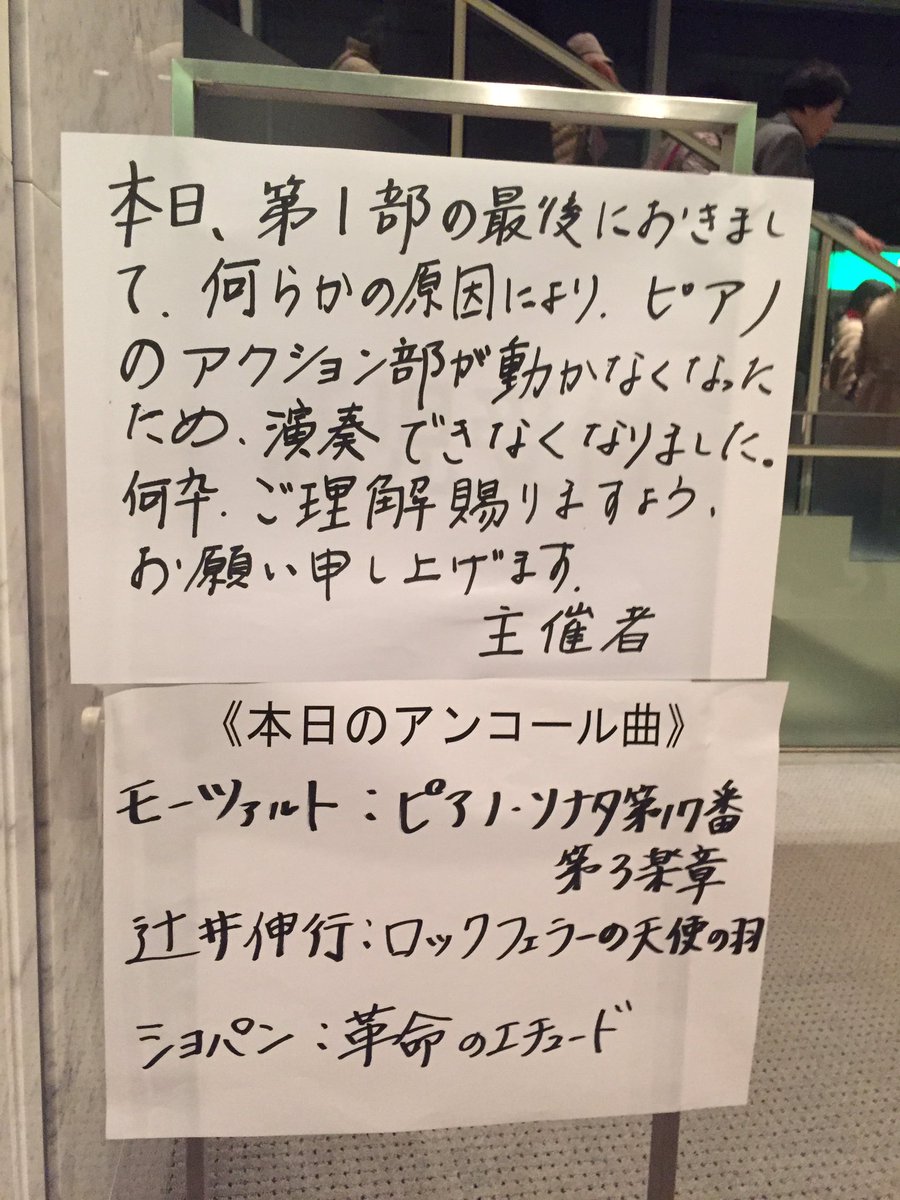 本日、第1部の最後におきまし
て、何らかの原因により、ピアノ
のアクション部が動かなくなった
ため、演奏できなくなりました。
何卒、ご理解賜りますよう、
お願い申し上げます。
主催者
《本日のアンコール曲》
モーツァルト:ピアノ・ソナタ第17番
第3楽章
辻井伸行:ロックフェラーの天使の羽
ショパン:革命のエチュード